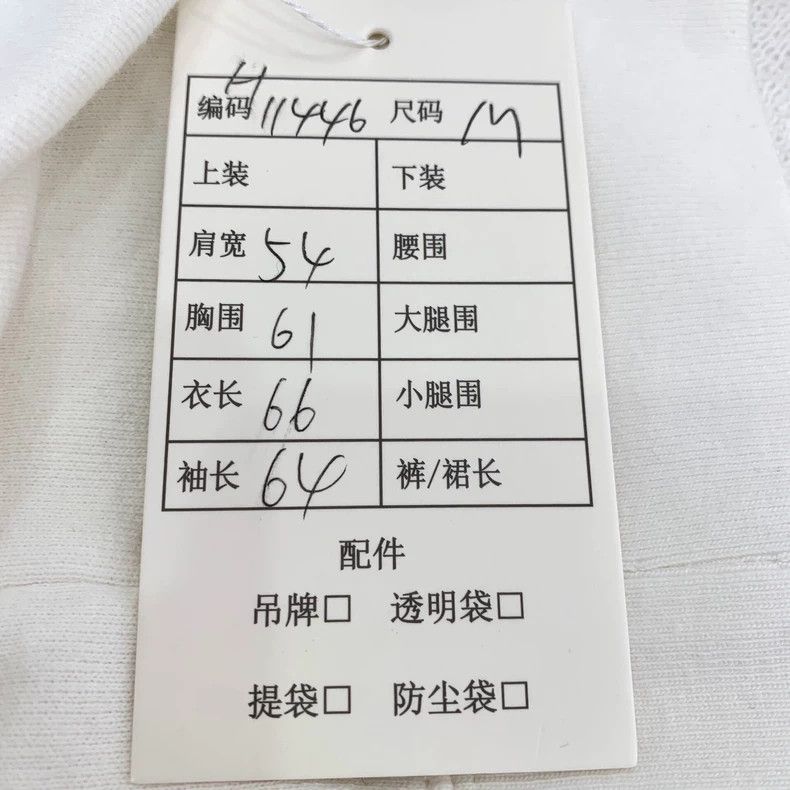 编码 H11446 尺码 M
上装 下装
肩宽 54 腰围
胸围 61 大腿围
衣长 66 小腿围
袖长 64 裤/裙长
配件
吊牌□ 透明袋□
提袋□ 防尘袋□